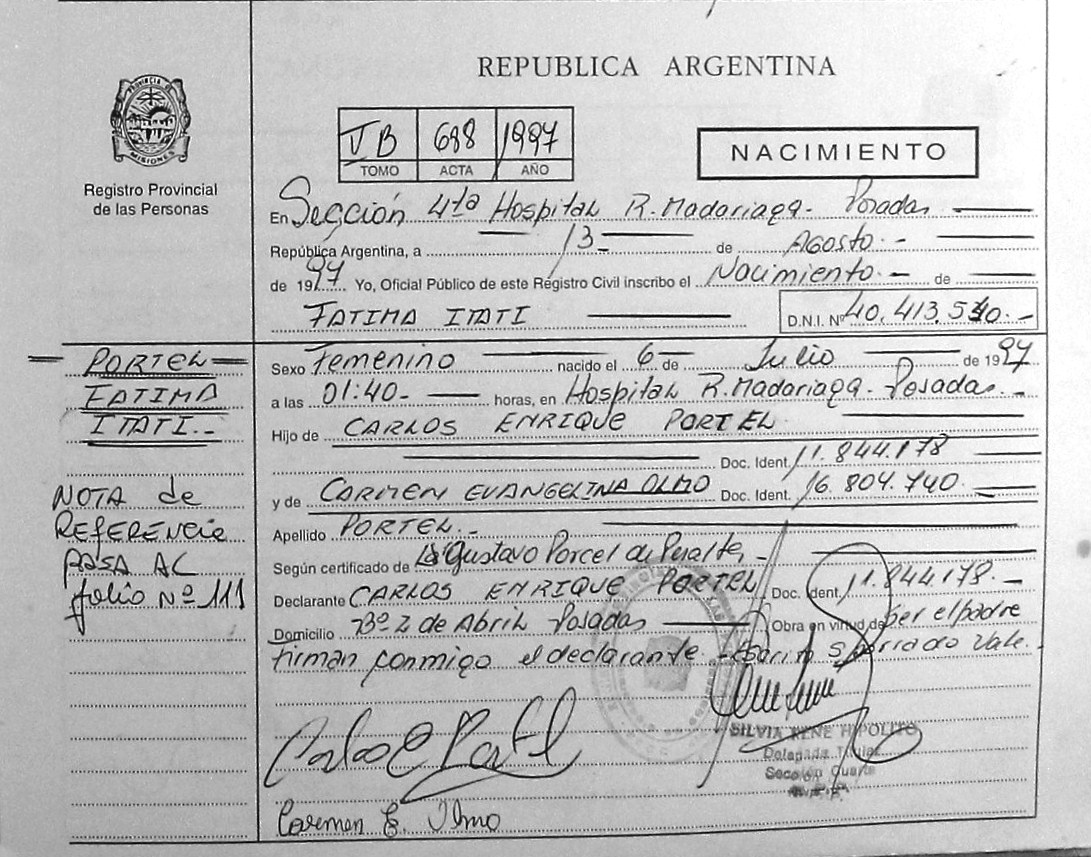 REPUBLICA ARGENTINA
PROVINCIA DE MISIONES
Registro Provincial
de las Personas
V B 698 1997
TOMO ACTA AÑO
NACIMIENTO
En Sección 4ta Hospital R. Madariaga - Posadas
República Argentina, a 13 de Agosto.-
de 1997 Yo, Oficial Público de este Registro Civil inscribo el Nacimiento.- de
FATIMA ITATI D.N.I. Nº 40.413.510.-
PORTEL
FATIMA
ITATI.-
Sexo Femenino nacido el 6 de Julio de 1997
a las 01:40- horas, en Hospital R. Madariaga - Posadas.-
Hijo de CARLOS ENRIQUE PORTEL
Doc. Ident. 11.844.178
y de CARMEN EVANGELINA OLMO Doc. Ident. 16.804.740.-
Apellido PORTEL.-
Según certificado de Gustavo Porcel de Peralta,-
Declarante CARLOS ENRIQUE PORTEL Doc. Ident. 11.844.178.-
Domicilio Bº 2 de Abril Posadas Obra en virtud de ser el padre
Firman conmigo el declarante - S/borrado Vale.
NOTA de
REFERENCIA
PASA AL
folio Nº 111
SILVIA RENE HIPOLITO
Delegada Titular
Sección Cuarta
Carlos E Portel
Carmen E. Olmo